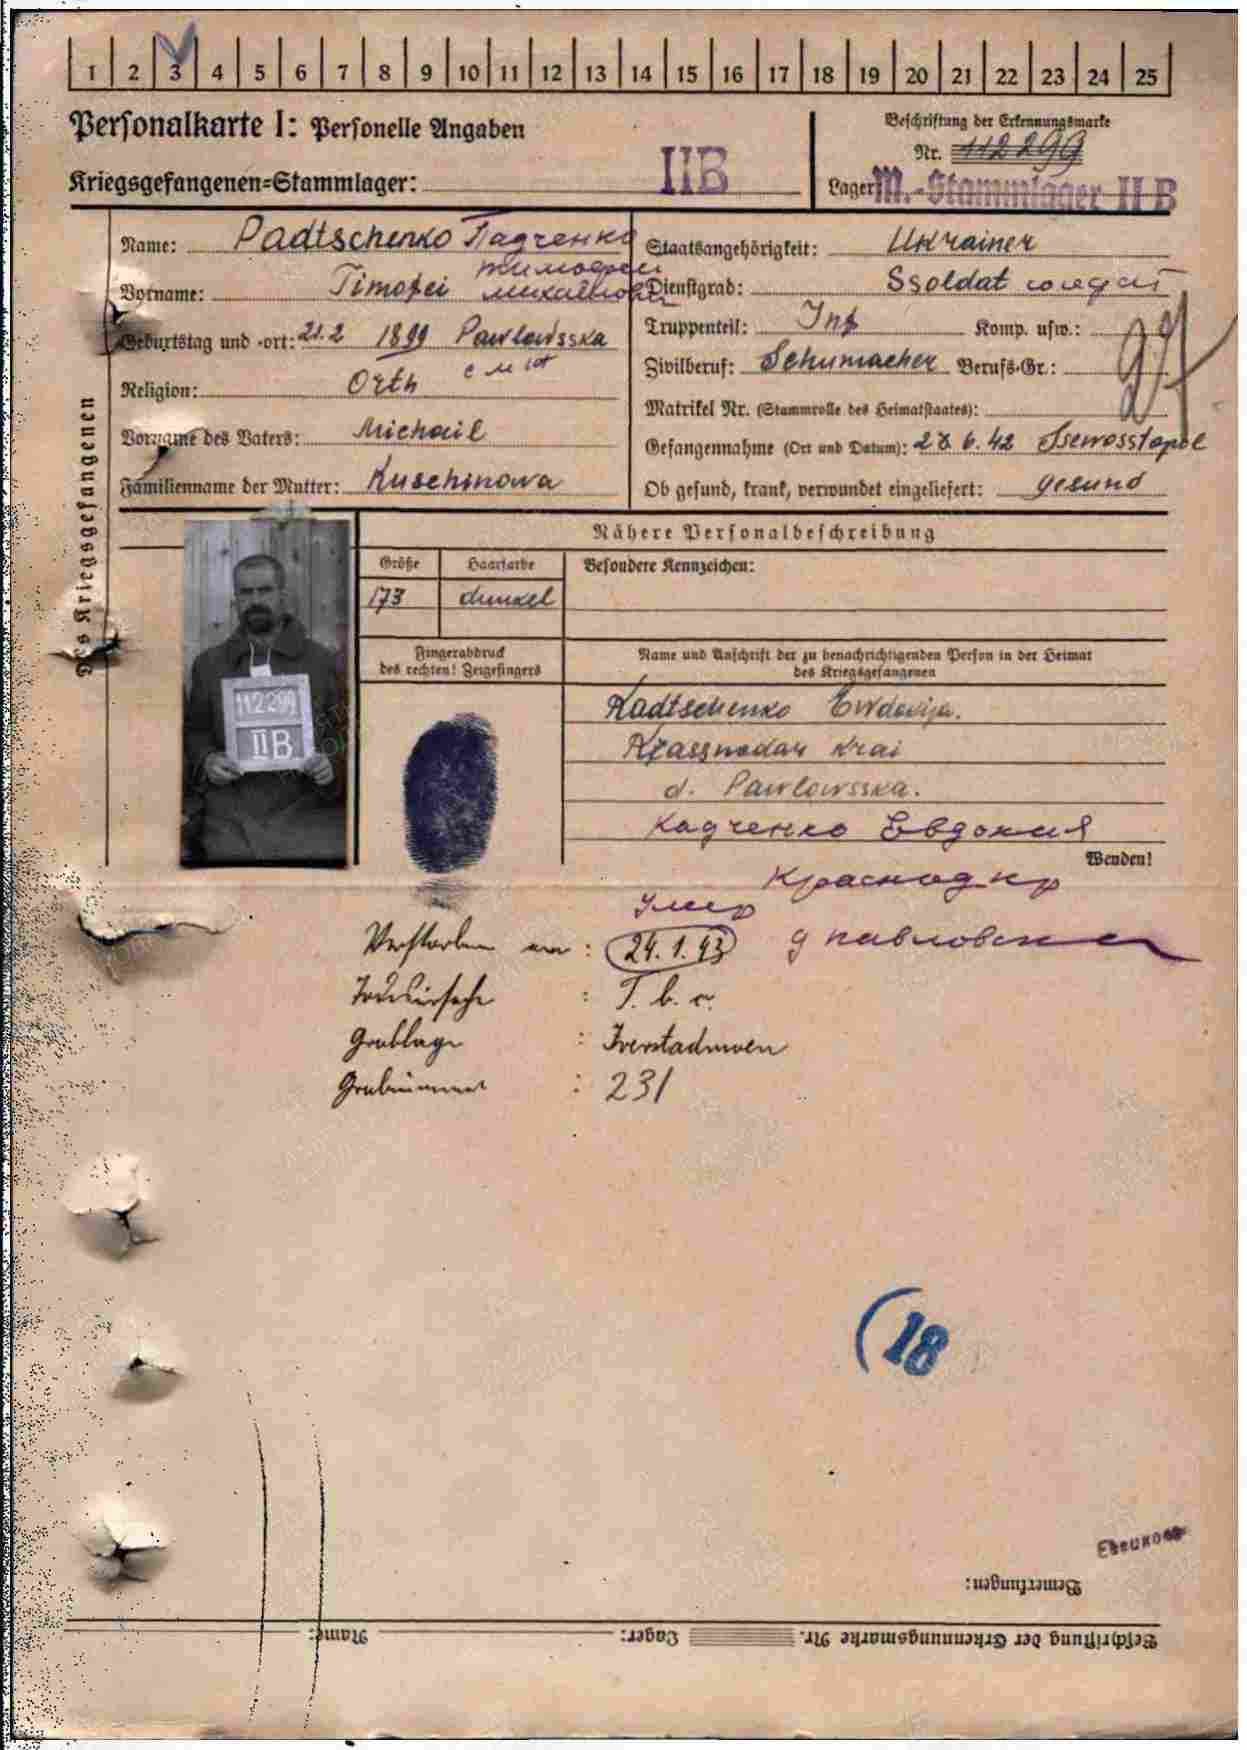 1 2 3 4 5 6 7 8 9 10 11 12 13 14 15 16 17 18 19 20 21 22 23 24 25
Personalkarte I: Personelle Angaben
Beschriftung der Erkennungsmarke
Nr. 112299
Kriegsgefangenen-Stammlager: II B
Lager: M.-Stammlager II B
Des Kriegsgefangenen
Name: Padtschenko Падченко
Staatsangehörigkeit: Ukrainer
Vorname: Timofei Тимофей Михайлович
Dienstgrad: Ssoldat солдат
Geburtstag und -ort: 21.2 1899 Pawlowsska
Truppenteil: Inf Komp. usw.:
Religion: Orth
Zivilberuf: Schumacher Berufs-Gr.:
Matrikel Nr. (Stammrolle des Heimatstaates):
Vorname des Vaters: Michail
Gefangennahme (Ort und Datum): 28.6.42 Ssewosstopol
Familienname der Mutter: Kuschinowa
Ob gesund, krank, verwundet eingeliefert: gesund
Nähere Personalbeschreibung
Größe Haarfarbe Besondere Kennzeichen:
173 dunkel
Fingerabdruck
des rechten! Zeigefingers
Name und Anschrift der zu benachrichtigenden Person in der Heimat
des Kriegsgefangenen
112299
II B
Kadtschenko Ewdokija.
Krassnodar Krai
d. Pawlowsska.
Кадченко Евдокия
Wenden!
Краснодар
умер
Verstorben am: 24.1.43 д павловска
Todesursache : T. b. c.
Grablage :
Grabnummer : 231
18
Bemerkungen:
Beschriftung der Erkennungsmarke Nr. Lager: Name: